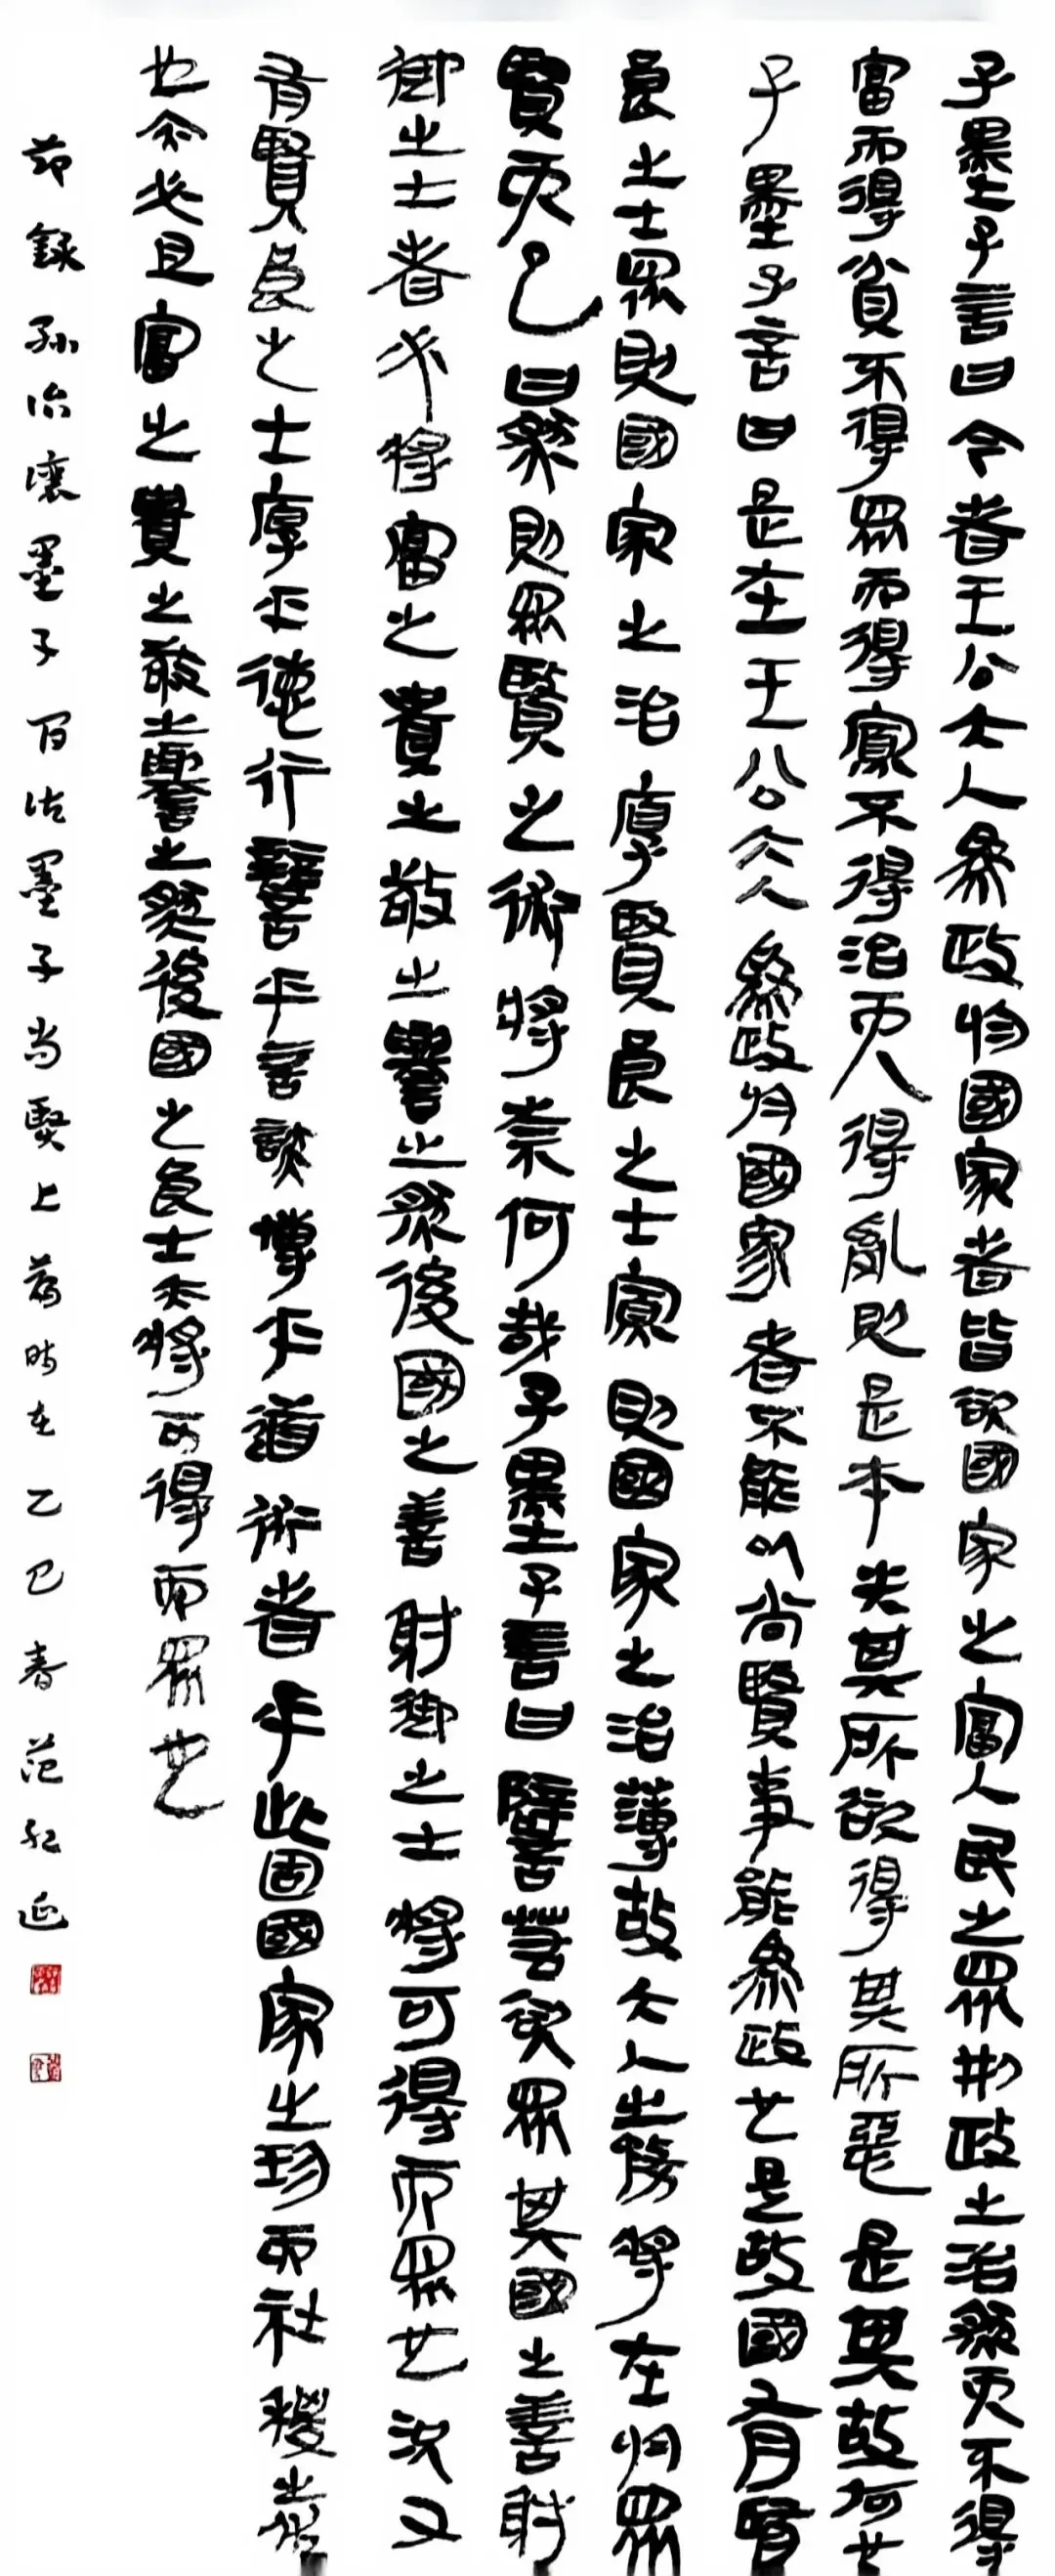 子墨子言曰今者王公大人為政於國家者皆欲國家之富人民之眾刑政之治然而不得
富而得貧不得眾而得寡不得治而得亂則是本失其所欲得其所惡是其故何也
子墨子言曰是在王公大人為政於國家者不能以尚賢事能為政也是故國有賢
良之士眾則國家之治厚賢良之士寡則國家之治薄故大人之務將在於眾
賢而已曰然則眾賢之術將奈何哉子墨子言曰譬若欲眾其國之善射
御之士者必將富之貴之敬之譽之然後國之善射御之士將可得而眾也況又
有賢良之士厚乎德行辯乎言談博乎道術者乎此固國家之珍而社稷之佐
也亦必且富之貴之敬之譽之然後國之良士亦將可得而眾也
節錄孫詒讓墨子间诂墨子尚賢上篇時在乙巳春范延